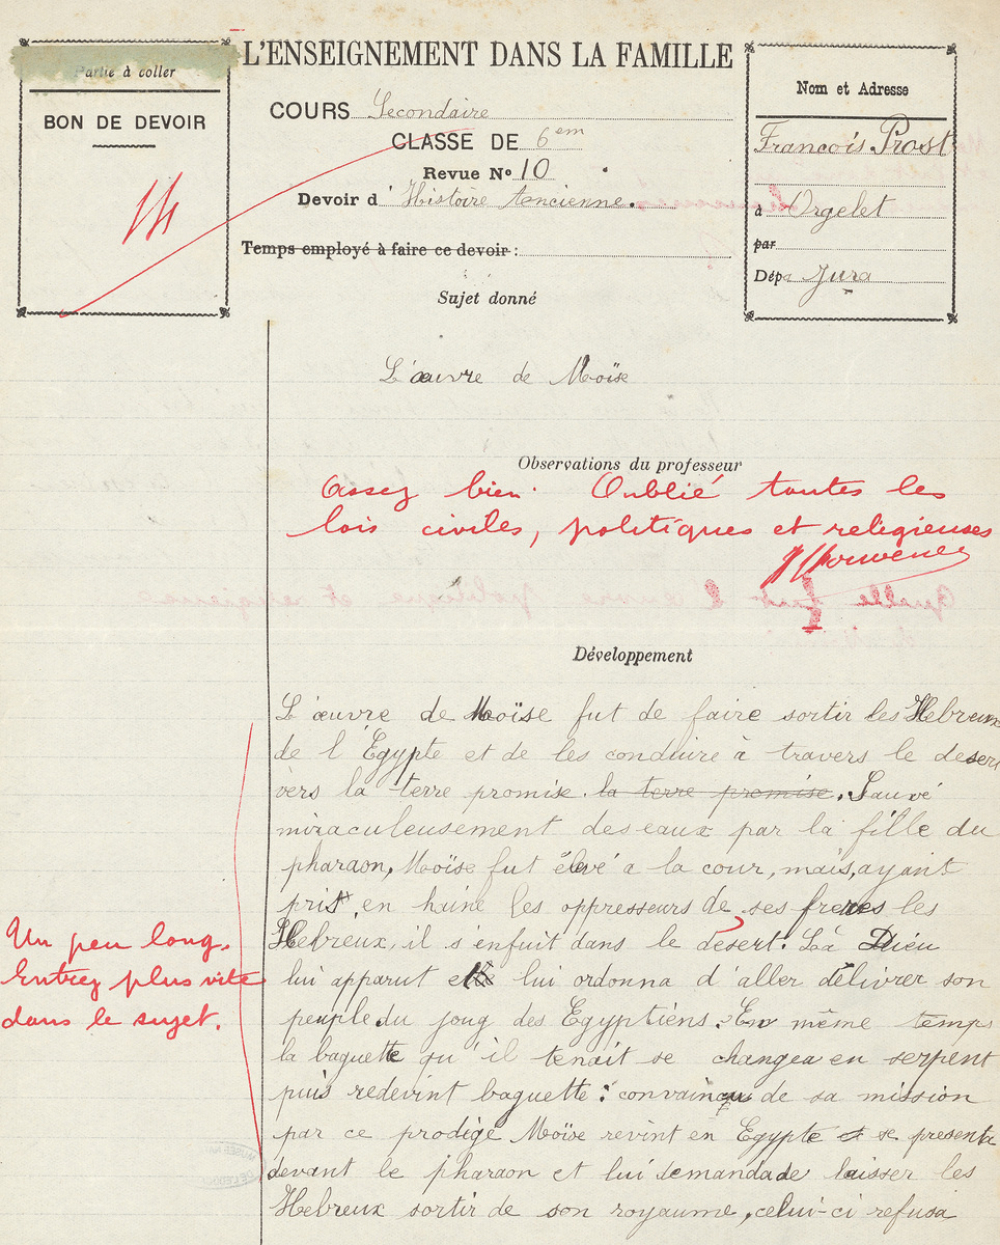 L'ENSEIGNEMENT DANS LA FAMILLE
Partie à coller
BON DE DEVOIR
14
COURS Secondaire
CLASSE DE 6em
Revue No 10
Devoir d'Histoire Ancienne.
Temps employé à faire ce devoir :
Nom et Adresse
Francois Prost
à Orgelet
par
Dépt Jura
Sujet donné
L'œuvre de Moïse
Observations du professeur
Assez bien. Oublié toutes les
lois civiles, politiques et religieuses
Développement
L'œuvre de Moïse fut de faire sortir les Hebreux
de l'Égypte et de les conduire à travers le desert
vers la terre promise. la terre promise. Sauvé
miraculeusement des eaux par la fille du
pharaon, Moïse fut élevé a la cour, mais, ayant
pris en haine les oppresseurs de ses freres les
Hebreux, il s'enfuit dans le desert. Là Dieu
lui apparut et lui ordonna d'aller délivrer son
peuple du joug des Egyptiens. En même temps
la baguette qu'il tenait se changea en serpent
puis redevint baguette : convaincu de sa mission
par ce prodige Moïse revint en Egypte et se presenta
devant le pharaon et lui demanda de laisser les
Hebreux sortir de son royaume, celui-ci refusa
Un peu long.
Entrez plus vite
dans le sujet.